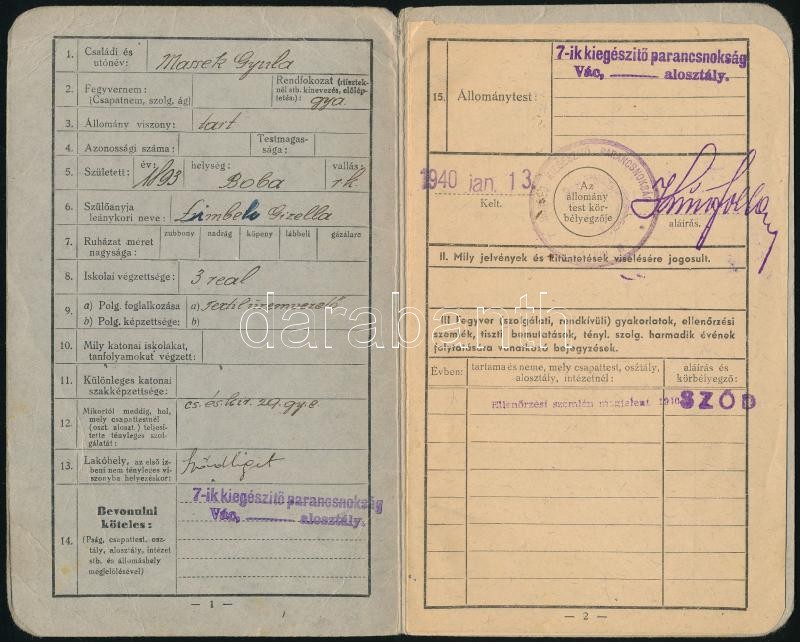 1. Családi és utónév: Massek Gyula
2. Fegyvernem: (Csapatnem, szolg. ág)
Rendfokozat (tiszteknél stb. kinevezés, előléptetés:) gya.
3. Állomány viszony: tart
4. Azonossági száma:
Testmagassága:
5. Született: év: 1893 helység: Boba vallás: rk.
6. Szülőanyja leánykori neve: Gizella
7. Ruházat méret nagysága: zubbony nadrág köpeny lábbeli gázálarc
8. Iskolai végzettsége: 3 real
9. a) Polg. foglalkozása a) Textilüzemvezető
b) Polg. képzettsége: b)
10. Mily katonai iskolákat, tanfolyamokat végzett:
11. Különleges katonai szakképzettsége:
12. Mikortól meddig, hol, mely csapattestnél (oszt. aloszt.) teljesítette tényleges szolgálatát: cs. és kir. 29. gy. e
13. Lakóhely, az első ízbeni nem tényleges viszonyba helyezéskor: Sződliget
14. Bevonulni köteles:
(Pság, csapattest, osztály, alosztály, intézet stb. és állomáshely megjelölésével)
7-ik kiegészítő parancsnokság
Vác, alosztály.
— 1 —
15. Állománytest:
7-ik kiegészítő parancsnokság
Vác, alosztály.
1940 jan. 13.
Kelt.
Az állomány test körbélyegzője
aláírás.
II. Mily jelvények és kitüntetések viselésére jogosult.
III. Fegyver (szolgálati, rendkívüli) gyakorlatok, ellenőrzési
szemlék, tiszti bemutatások, tényl. szolg. harmadik évének
folytatására vonatkozó bejegyzések.
Évben: tartama és neme, mely csapattest, osztály, alosztály, intézetnél: aláírás és körbélyegző:
Ellenőrzési szemlén megjelent. 1940 SZŐD
— 2 —
darabanth